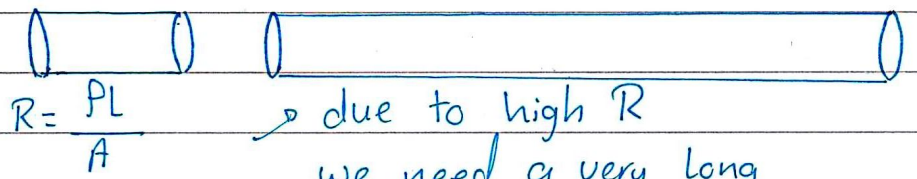 R = ρL / A
→ due to high R
we need a very long